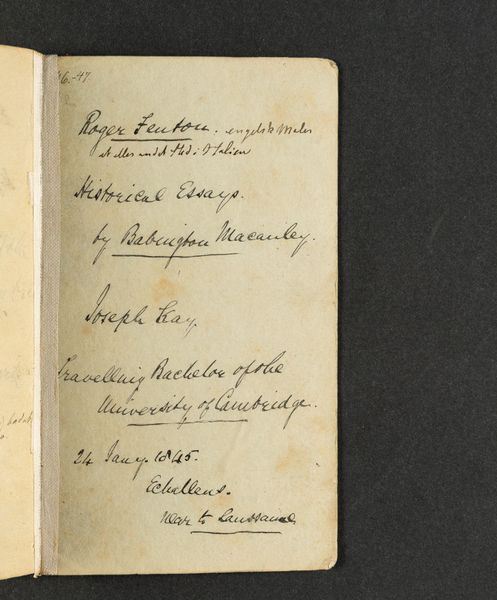 46.-47
Roger Fenton. engelsk Maler
et eller andet Sted i Italien
Historical Essays.
by Babington Macauley.
Joseph Kay,
Travelling Bachelor of the
University of Cambridge.
24 Jany. 1845.
Echallens.
near to Laussanne